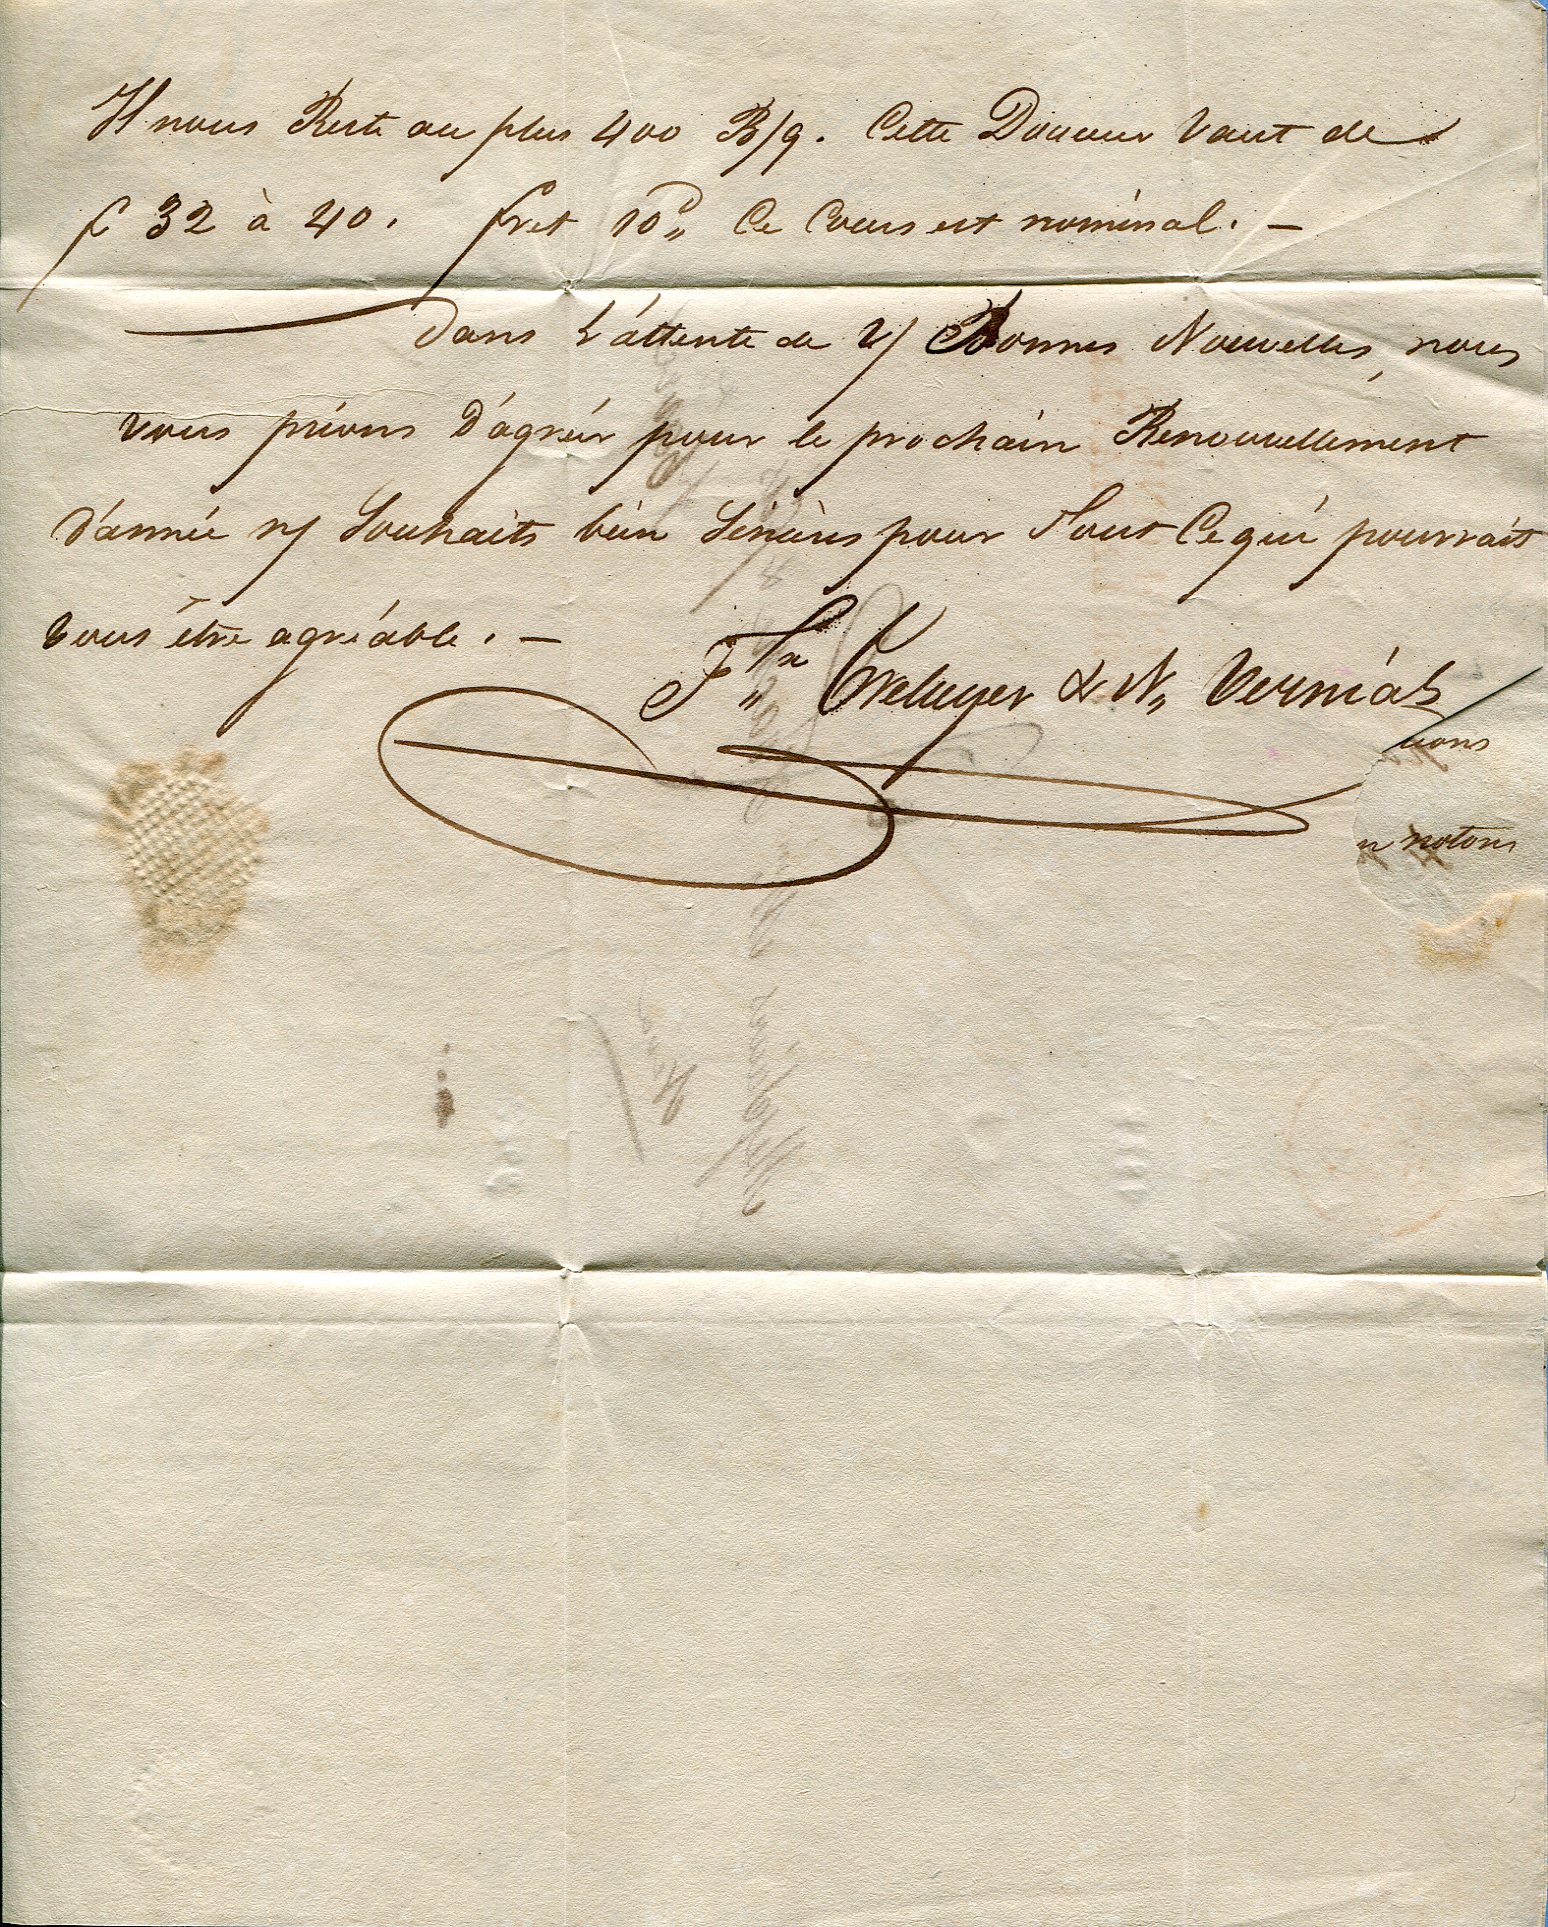 Il nous Reste au plus 400 B/q. Cette Douceur Vaut de
f 32 à 40. fret 10d„ Ce Cours est nominal. —
Dans L'attente de V/ Bonnes Nouvelles, nous
vous prions D'agréer pour le prochain Renouvellement
D'année n/ Souhaits bien Sincères pour Tout Ce qui pourrait
Vous être agréable. —
& N„ Vernial
tions
n notons